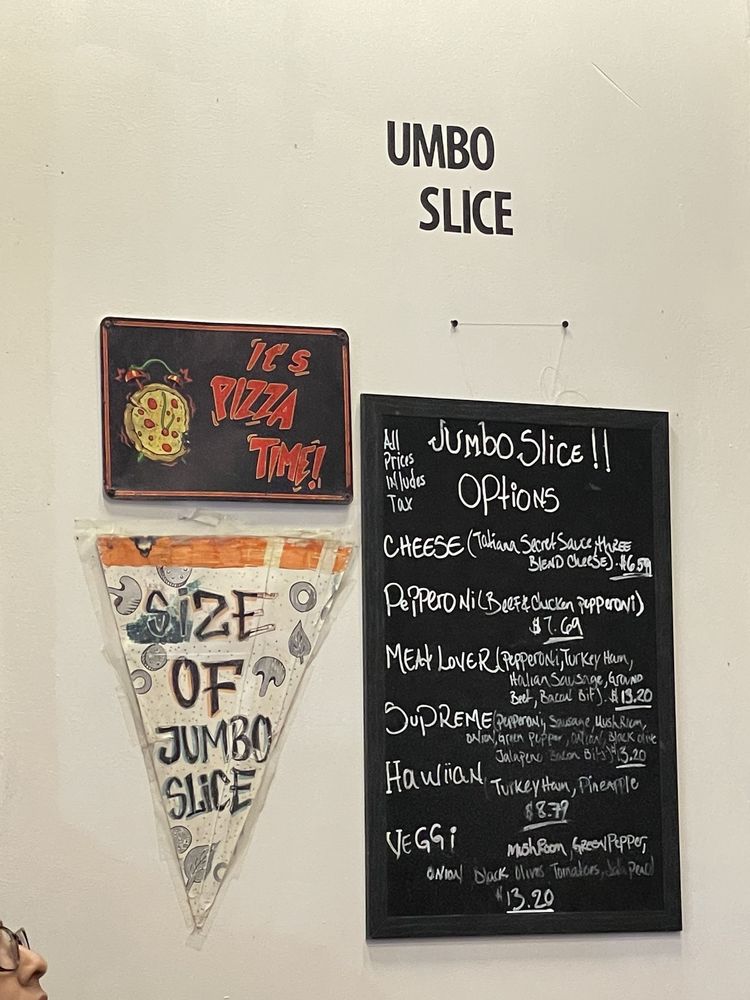 UMBO
SLICE
It's
PIZZA
TIME!
SIZE
OF
JUMBO
SLICE
All
Prices
Inludes
Tax
Jumbo Slice !!
Options
CHEESE (Tatiana Secret Sauce, three
Blend Cheese). $6.59
Pepperoni (Beef & Chicken pepperoni)
$7.69
Meat Lover (pepperoni, Turkey Ham,
Italian Sausage, Ground
Beef, Bacon Bit). $13.20
Supreme (pepperoni, Sausage, Mushroom,
onion, Green Pepper, Black olive
Jalapeno Bacon Bits) $13.20
Hawiian Turkey Ham, Pineapple
$8.79
Veggi Mushroom, Green Pepper,
onion Black Olives Tomatoes,
$13.20